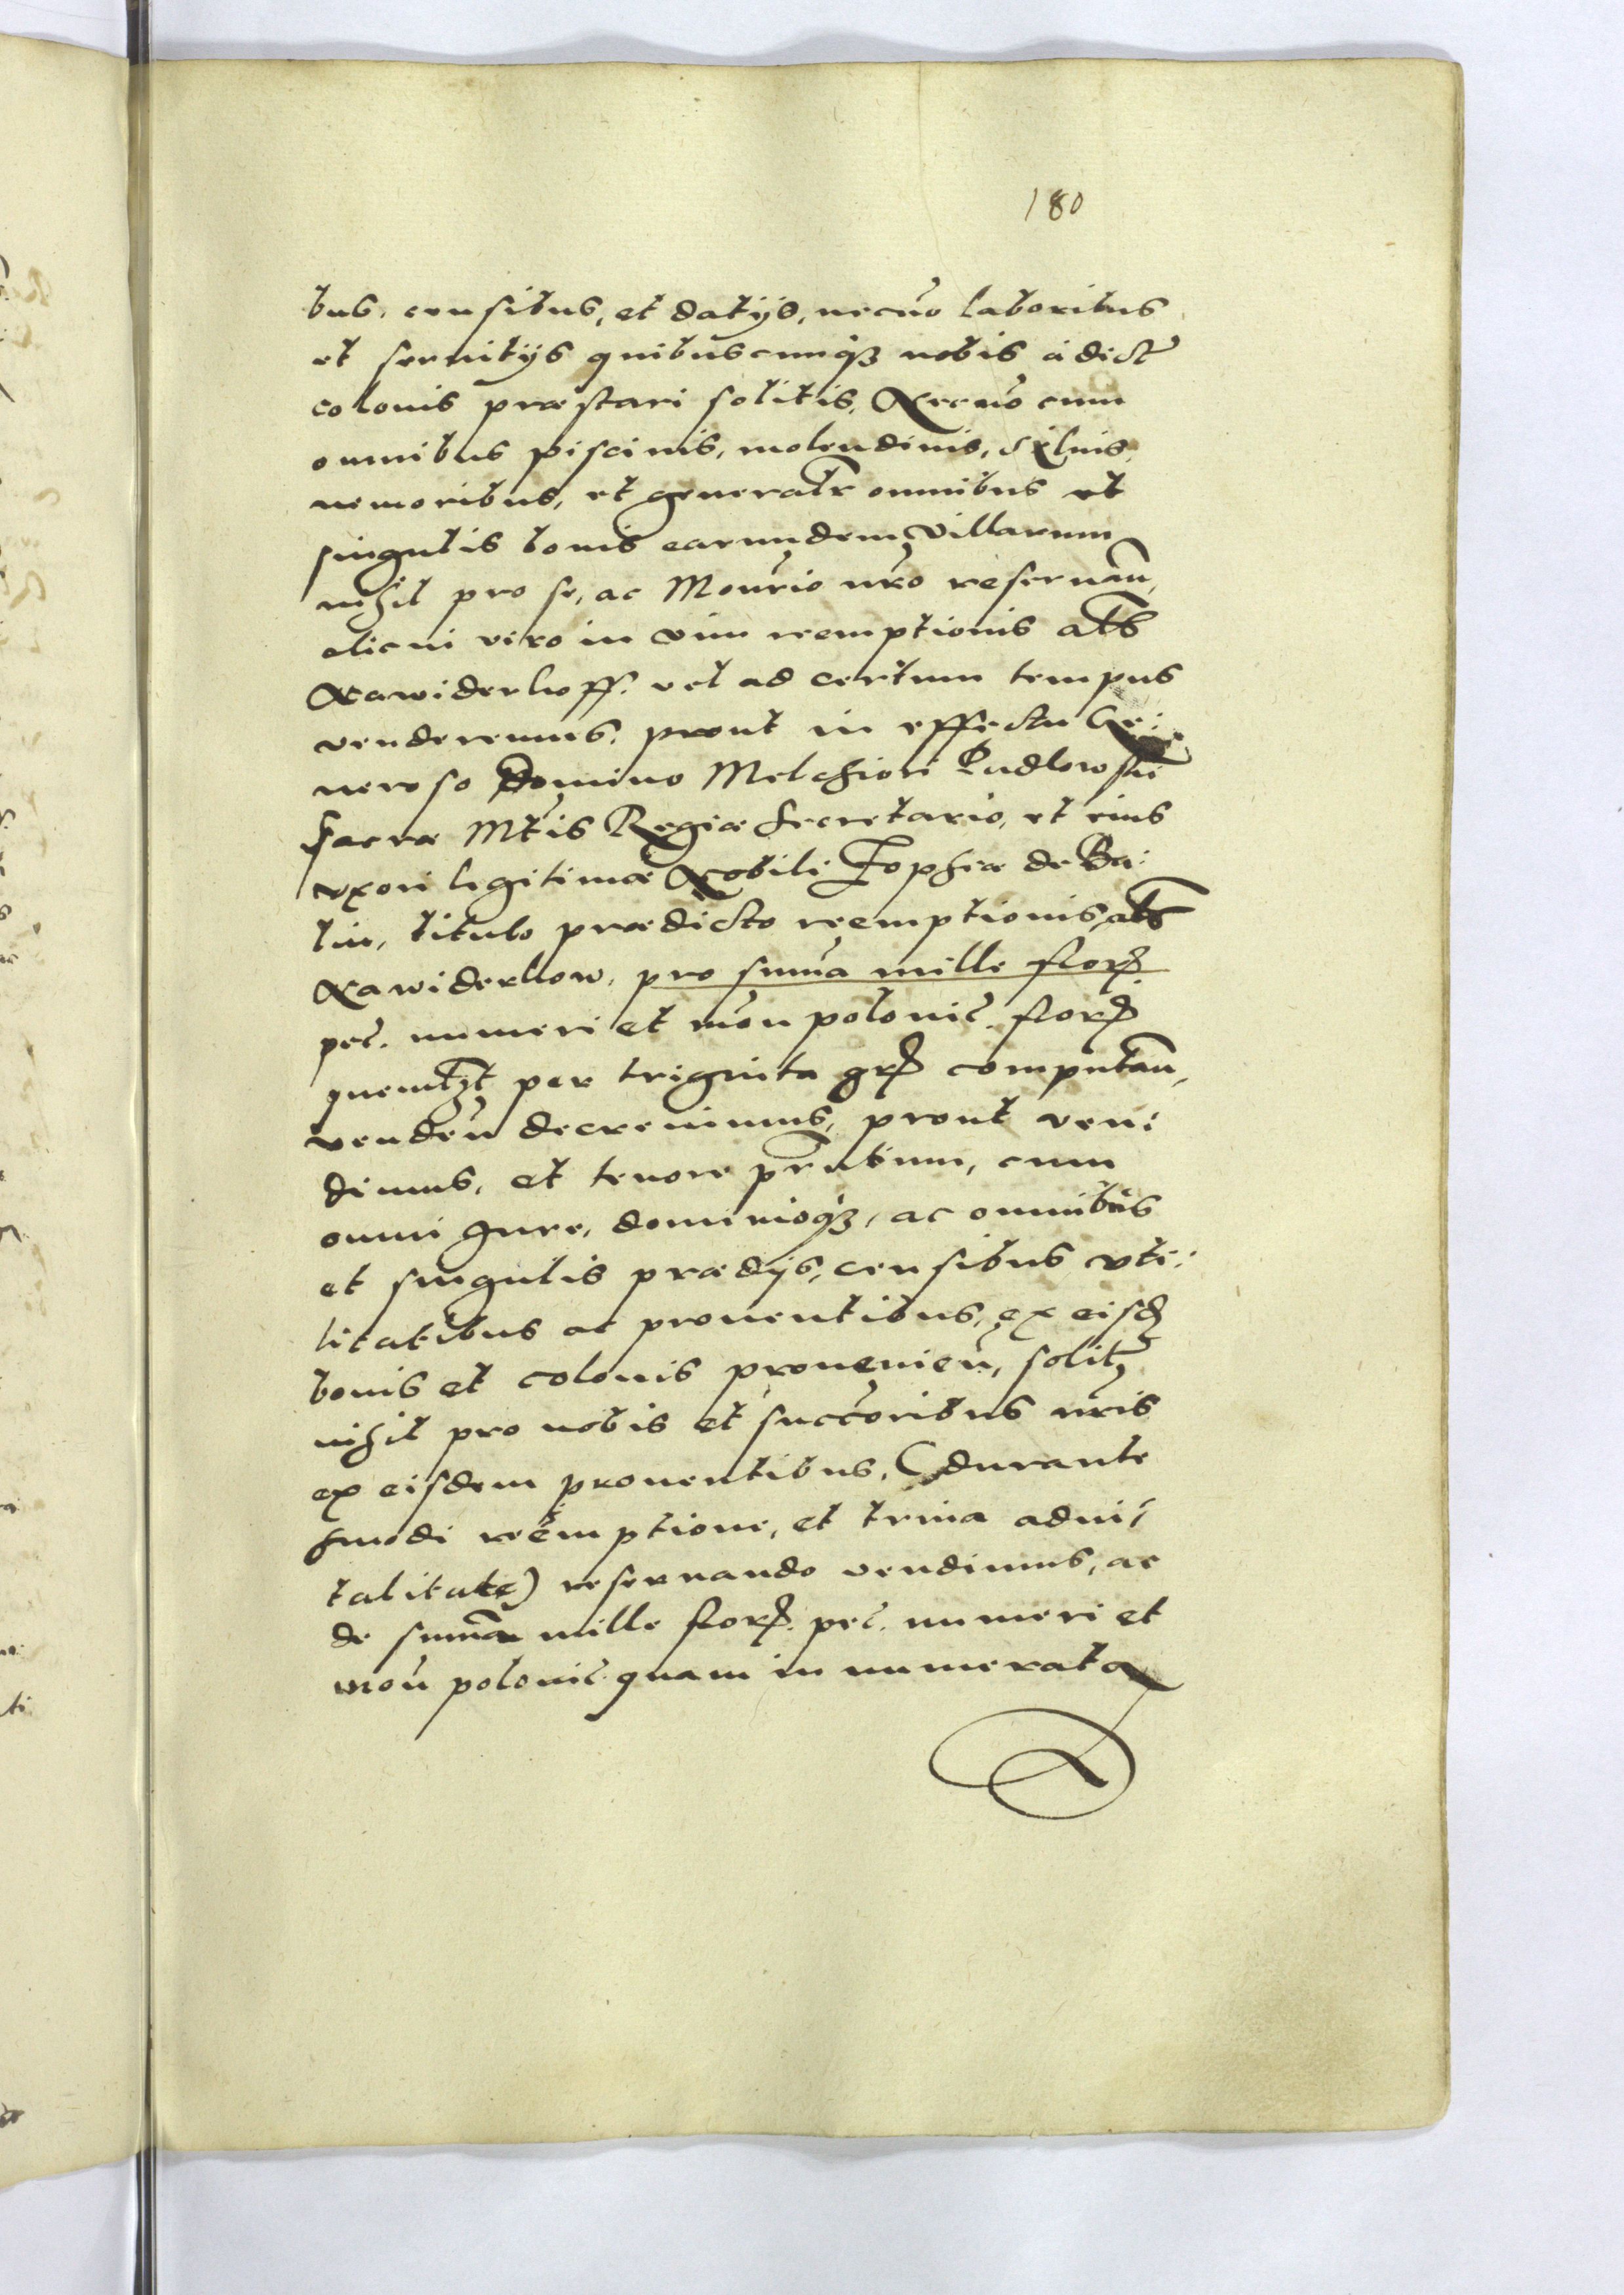 180
bus, censibus, et datijs, necnõ laboribus
et seruitijs quibuscunqȝ nobis à dict̃
colonis præstari solitis, Necnõ cum
omnibus piscinis, molendinis, Syluis,
nemoribus, et generalr̃ omnibus et
singulis bonis earundem Villarum
nihil pro se, ac Monr̃io nr̃o reseruañ,
alicui viro in vim reemptionis als̃
Nawiderkoff. vel ad certum tempus
venderemus, prout in effectu Ge:
neroso Domino Melchiori Pudlowskĩ
Sacræ Mt̃is Regiæ Secretario, et eius
vxori legitimæ Nobili Zophiæ de Ba:
lin, titulo prædicto reemptionis als̃
Nawiderkow, pro sum̃a mille florꝭ
pec̃. numeri et moñ polonic̃. florꝭ
quemlȝt per triginta grꝭ computañ,
vendeñ decreuimus, prout ven:
dimus, et tenore pñtium, cum
omni Iure, dominioqȝ, ac omnibus
et singulis prædijs, censibus vti:
litatibus ac prouentibus, ex eisdꝭ
bonis et colonis proueniẽn, solitꝭ
nihil pro nobis et succ̃oribus nr̃is
ex eisdem prouentibus, (durante
hmodi reẽmptione, et trina adui:
talitate) reseruando vendimus, ac
de sum̃a mille florꝭ. pec̃. numeri et
moñ polonic̃. quam in numerata